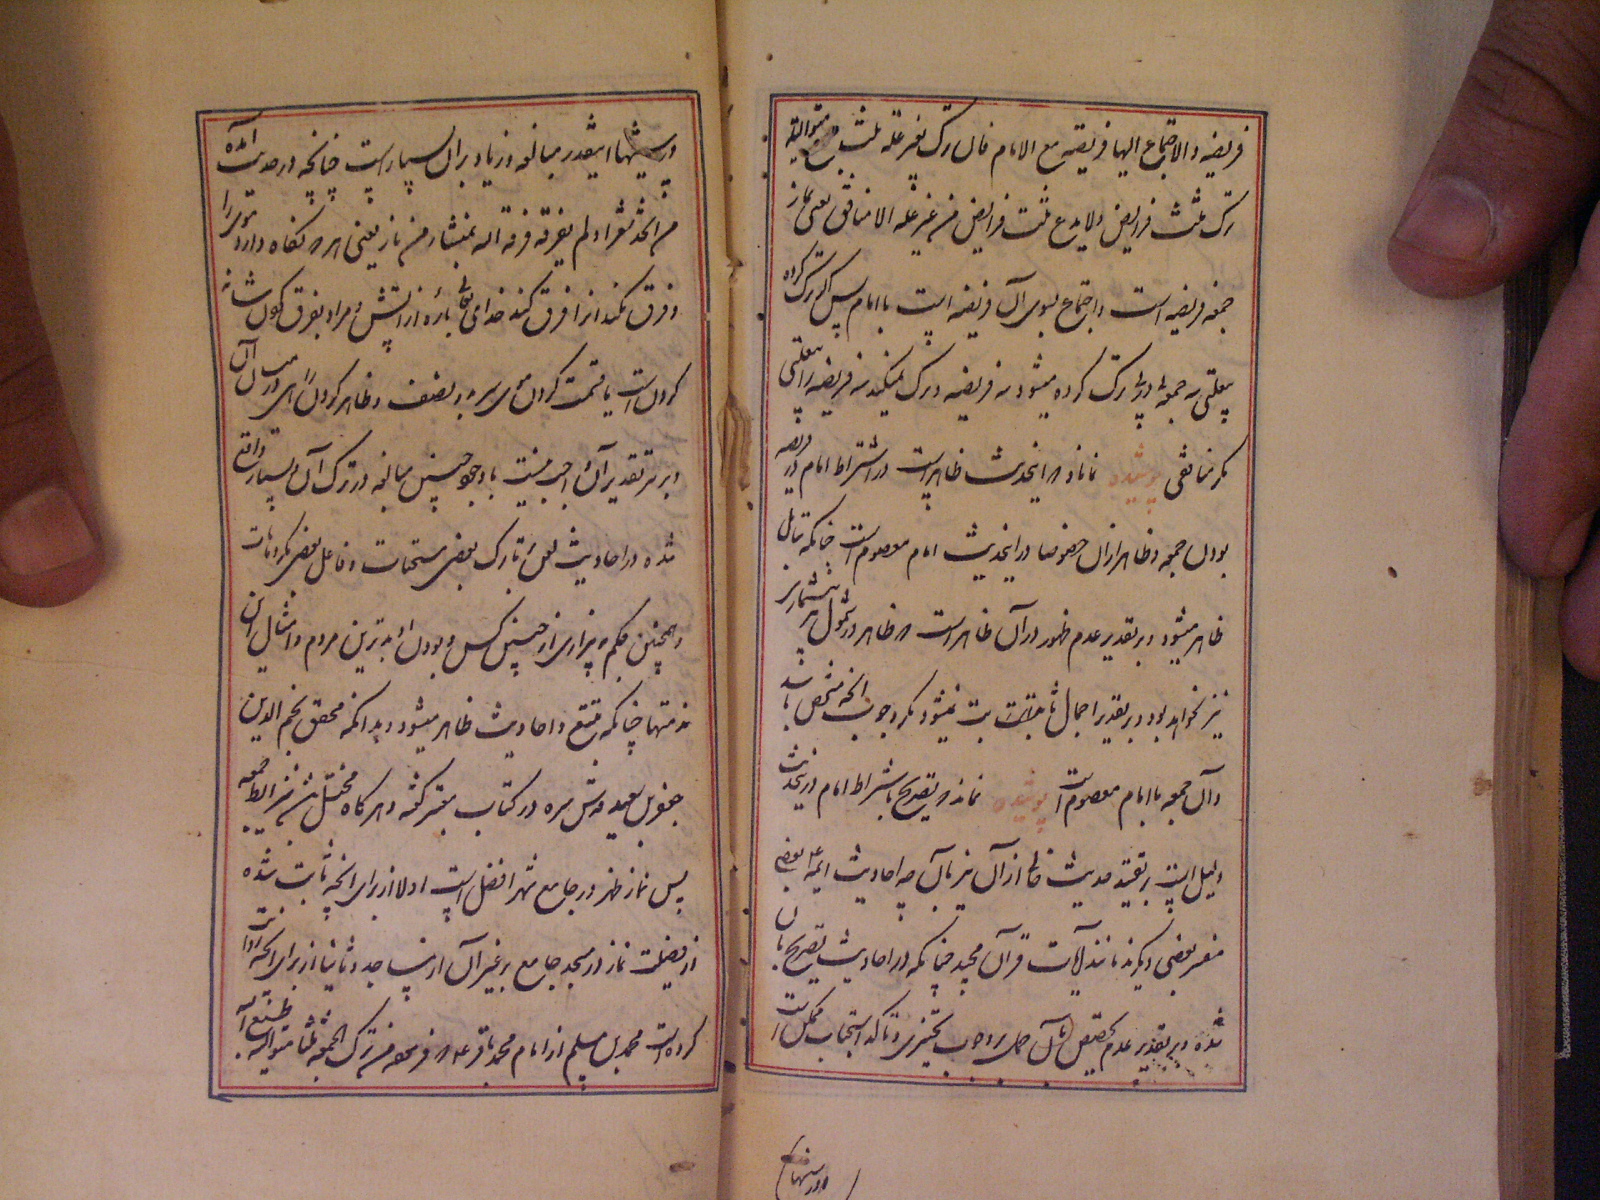 فریضه والاجتماع الیها فریضه مع الامام فان ترک بغیر علة ثلث جمع متوالیة
ترک ثلث فرایض ولا یدع ثلث فرایض من غیر علة الا منافق یعنی نماز
جمعه فریضه است و اجتماع بسوی آن فریضه است با امام پس اگر ترک کرده
بیعلتی سه جمعه پی در پی ترک کرده میشود سه فریضه و ترک نمیکند سه فریضه را بیعلتی
مگر منافقی پوشیده نماناد که اینحدیث ظاهر است در اشتراط امام در فریضه
بودن جمعه و ظاهر از آن خصوصا در اینحدیث امام معصوم است چنانکه بتامل
ظاهر میشود و بر تقدیر عدم ظهور در آن ظاهر است که ظاهر در شمول پیشنماز
نیز نخواهد بود و بر تقدیر اجمال ثابت نمیشود مگر وجوب آنچه مشخص باشد
و آن جمعه با امام معصوم است پوشیده نماند که تصریح باشتراط امام در اینحدیث
دلیل است بر تقیید حدیث خالی از آن نیز بآن چه احادیث ائمه ع بعضی
مفسر بعضی دیگرند مانند آیات قرآن مجید چنانکه در احادیث تصریح بآن
شده و بر تقدیر عدم تخصیص بآن حمل بر وجوب تخییری و تاکد استحباب ممکن است
در سنتها
در سنتها اینقدر مبالغه و زیاد بر آن بسیار است چنانچه در حدیث آمده
من اتخذ شعرا ولم یفرقه فرقه الله بمنشار من نار یعنی هر که نگاه دارد موی را
و فرق نکند آنرا فرق کند خدای تعالی باره از آتش و مراد بفرق گویا شانه
کردن است یا قسمت کردن موی سر بدو نصف و ظاهر کردن راهی در میان آن
و بر هر تقدیر آن واجب نیست با وجود چنین مبالغه در ترک آن و بسیار واقع
شده در احادیث لعن بر تارک بعضی مستحبات و فاعل بعضی مکروهات
و همچنین حکم به بیزاری از چنین کس و بودن او بدترین مردم و امثال این
مذمتها چنانکه بتتبع احادیث ظاهر میشود و بدانکه محقق نجم الدین
جعفر بن سعید قدس سره در کتاب معتبر گفته که هر گاه مختل شد شرایط جمعه
پس نماز ظهر در جامع شهر افضل است اولا از برای آنچه ثابت شده
از فضیلت نماز در مسجد جامع بر غیر آن از مساجد و ثانیا از برای آنچه روایت
کرده است محمد بن مسلم از امام محمد باقر ع که فرموده من ترک الجمعة ثلثا متوالیة طبع الله